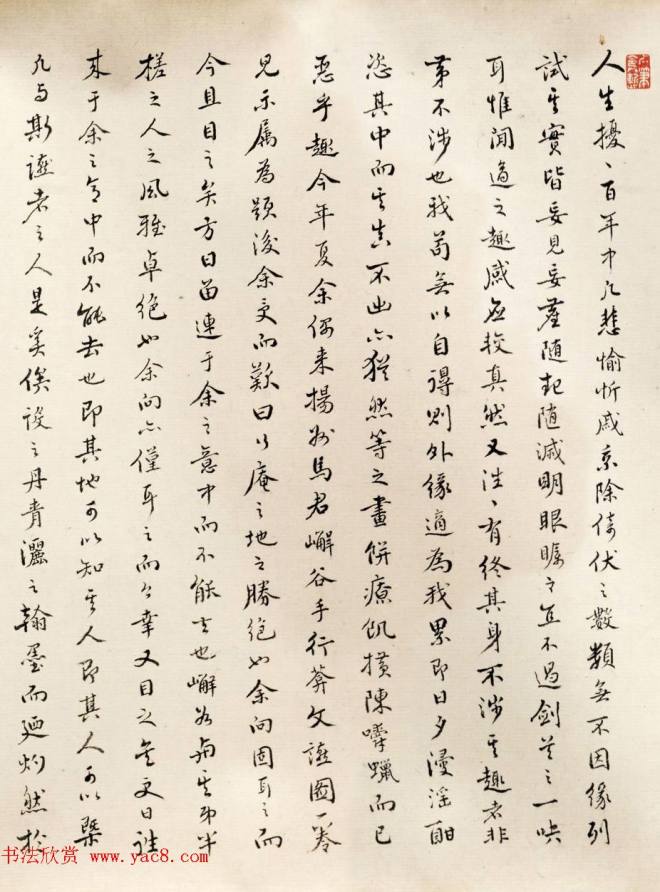 人生擾〻百年中凡悲愉忻戚乘除倚伏之數類無不因緣列
試其實皆妄見妄塵隨起隨滅明眼矚之直不過劍首之一吷
耳惟閒適之趣感應較真然又往〻有終其身不涉其趣者非
第不涉也我苟無以自得則外緣適為我累即日夕漫淫酣
恣其中而其真不出亦猶然等之畫餅療飢橫陳嚼蠟而已
惡乎趣今年夏余偶来揚州馬君嶰谷手行菴文讌圖一卷
見示属為題後余受而歎曰行庵之地之勝絕如余向固耳之而
今且目之矣方日留連于余之意中而不能去也嶰谷与其弟半
槎之人之風雅卓絕如余向亦僅耳之而今幸又目之矣更日往
来于余之意中而不能去也即其地可以知其人即其人可以槩
凡与斯讌者之人是奚俟設之丹青灑之翰墨而廼灼然於
书法欣赏 www.yac8.com